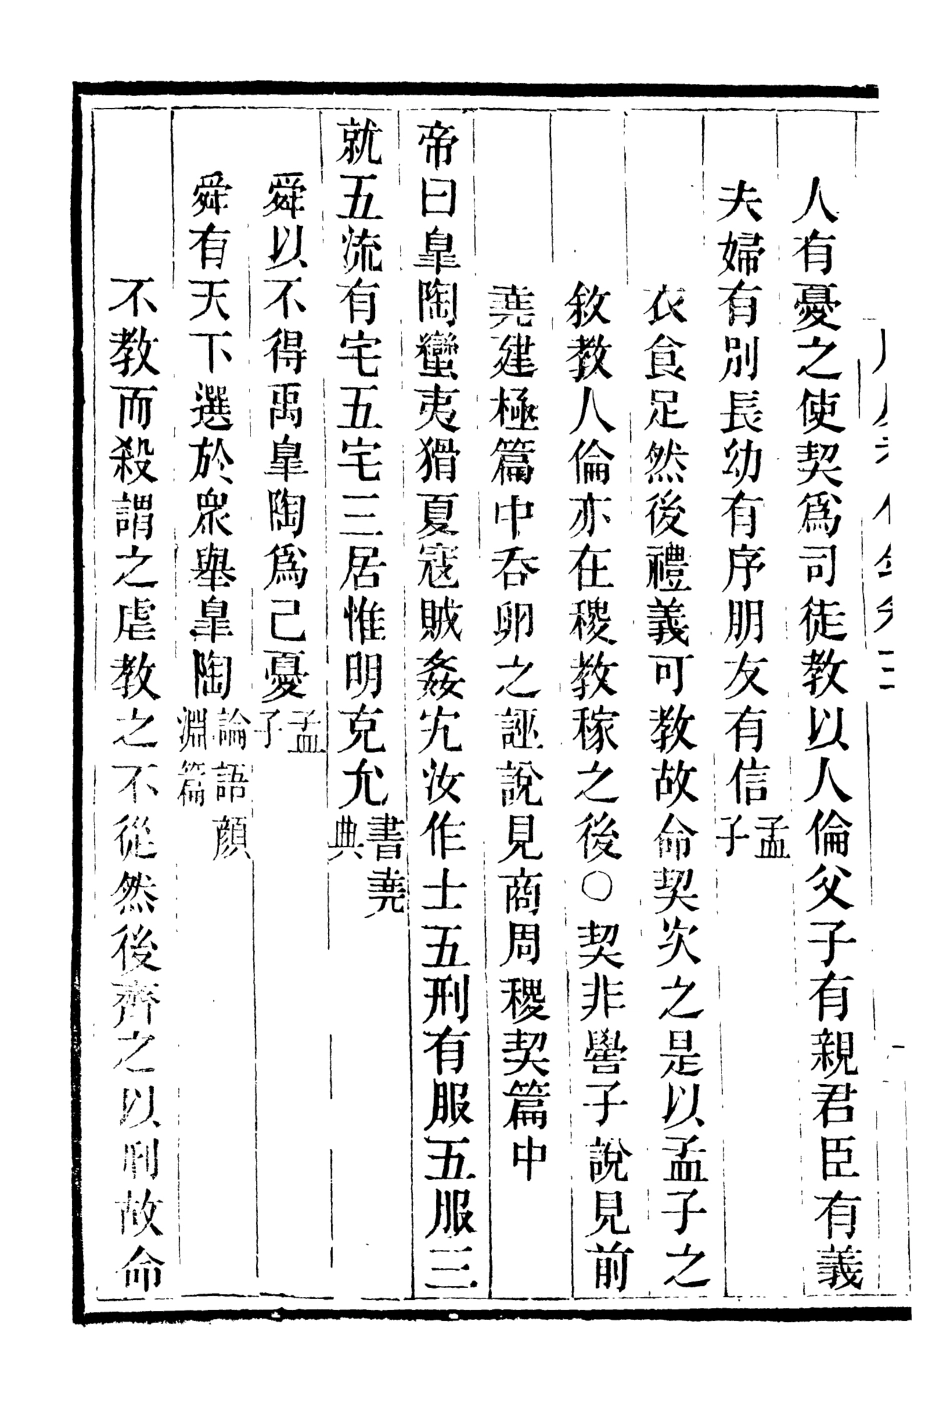 人有憂之使契爲司徒教以人倫父子有親君臣有義
夫婦有別長幼有序朋友有信孟子
衣食足然後禮義可教故命契次之是以孟子之
敘教人倫亦在稷教稼之後○契非嚳子說見前
堯建極篇中吞卵之誣說見商周稷契篇中
帝曰皐陶蠻夷猾夏寇賊姦宄汝作士五刑有服五服三
就五流有宅五宅三居惟明克允書堯典
舜以不得禹皐陶爲己憂孟子
舜有天下選於眾舉皐陶論語顏淵篇
不教而殺謂之虐教之不從然後齊之以刑故命